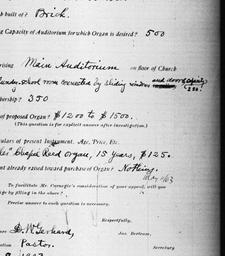 ch built of? Brick.
ng Capacity of Auditorium for which Organ is desired? 500
rising Main Auditorium on floor of Church
Sunday-school room connected by sliding windows and doors (capacity
250)
bership? 350
of proposed Organ? $1200 to $1500.
(This question is for explicit answer after investigation.)
culars of present Instrument. Age, Price, Etc.
Chapel Reed organ, 15 years, $125.
nt already raised toward purchase of Organ? Nothing.
To facilitate Mr. Carnegie's consideration of your appeal, will you
ge by filling in the above?
Precise answer to each question is necessary.
Respectfully,
D. W. Gerhard, Jas. Bertram,
ation Pastor. Secretary